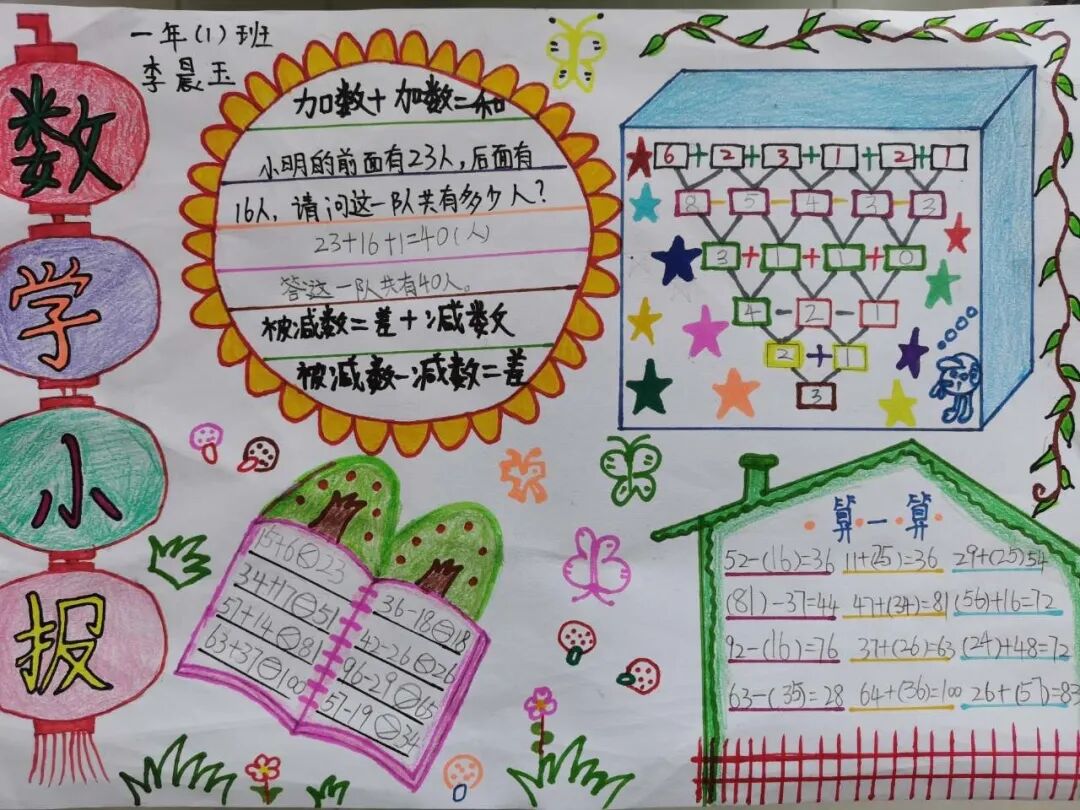 数学小报
一年(1)班
李晨玉
加数+加数=和
小明的前面有23人,后面有
16人,请问这一队共有多少人?
23+16+1=40(人)
答这一队共有40人。
被减数=差+减数
被减数-减数=差
6+2+3+1+2+1
8-5-4-3-3
3+1+1+0
4-2-1
2+1
3
15+6<23
34+17=51
57+14<81
63+37=100
36-18=18
42-26<26
96-29
65
57-19
34
算一算
52-(16)=36 11+(25)=36 29+(25)54
(81)-37=44 47+(34)=81 (56)+16=72
92-(16)=76 37+(26)=63 (24)+48=72
63-(35)=28 64+(36)=100 26+(57)=83